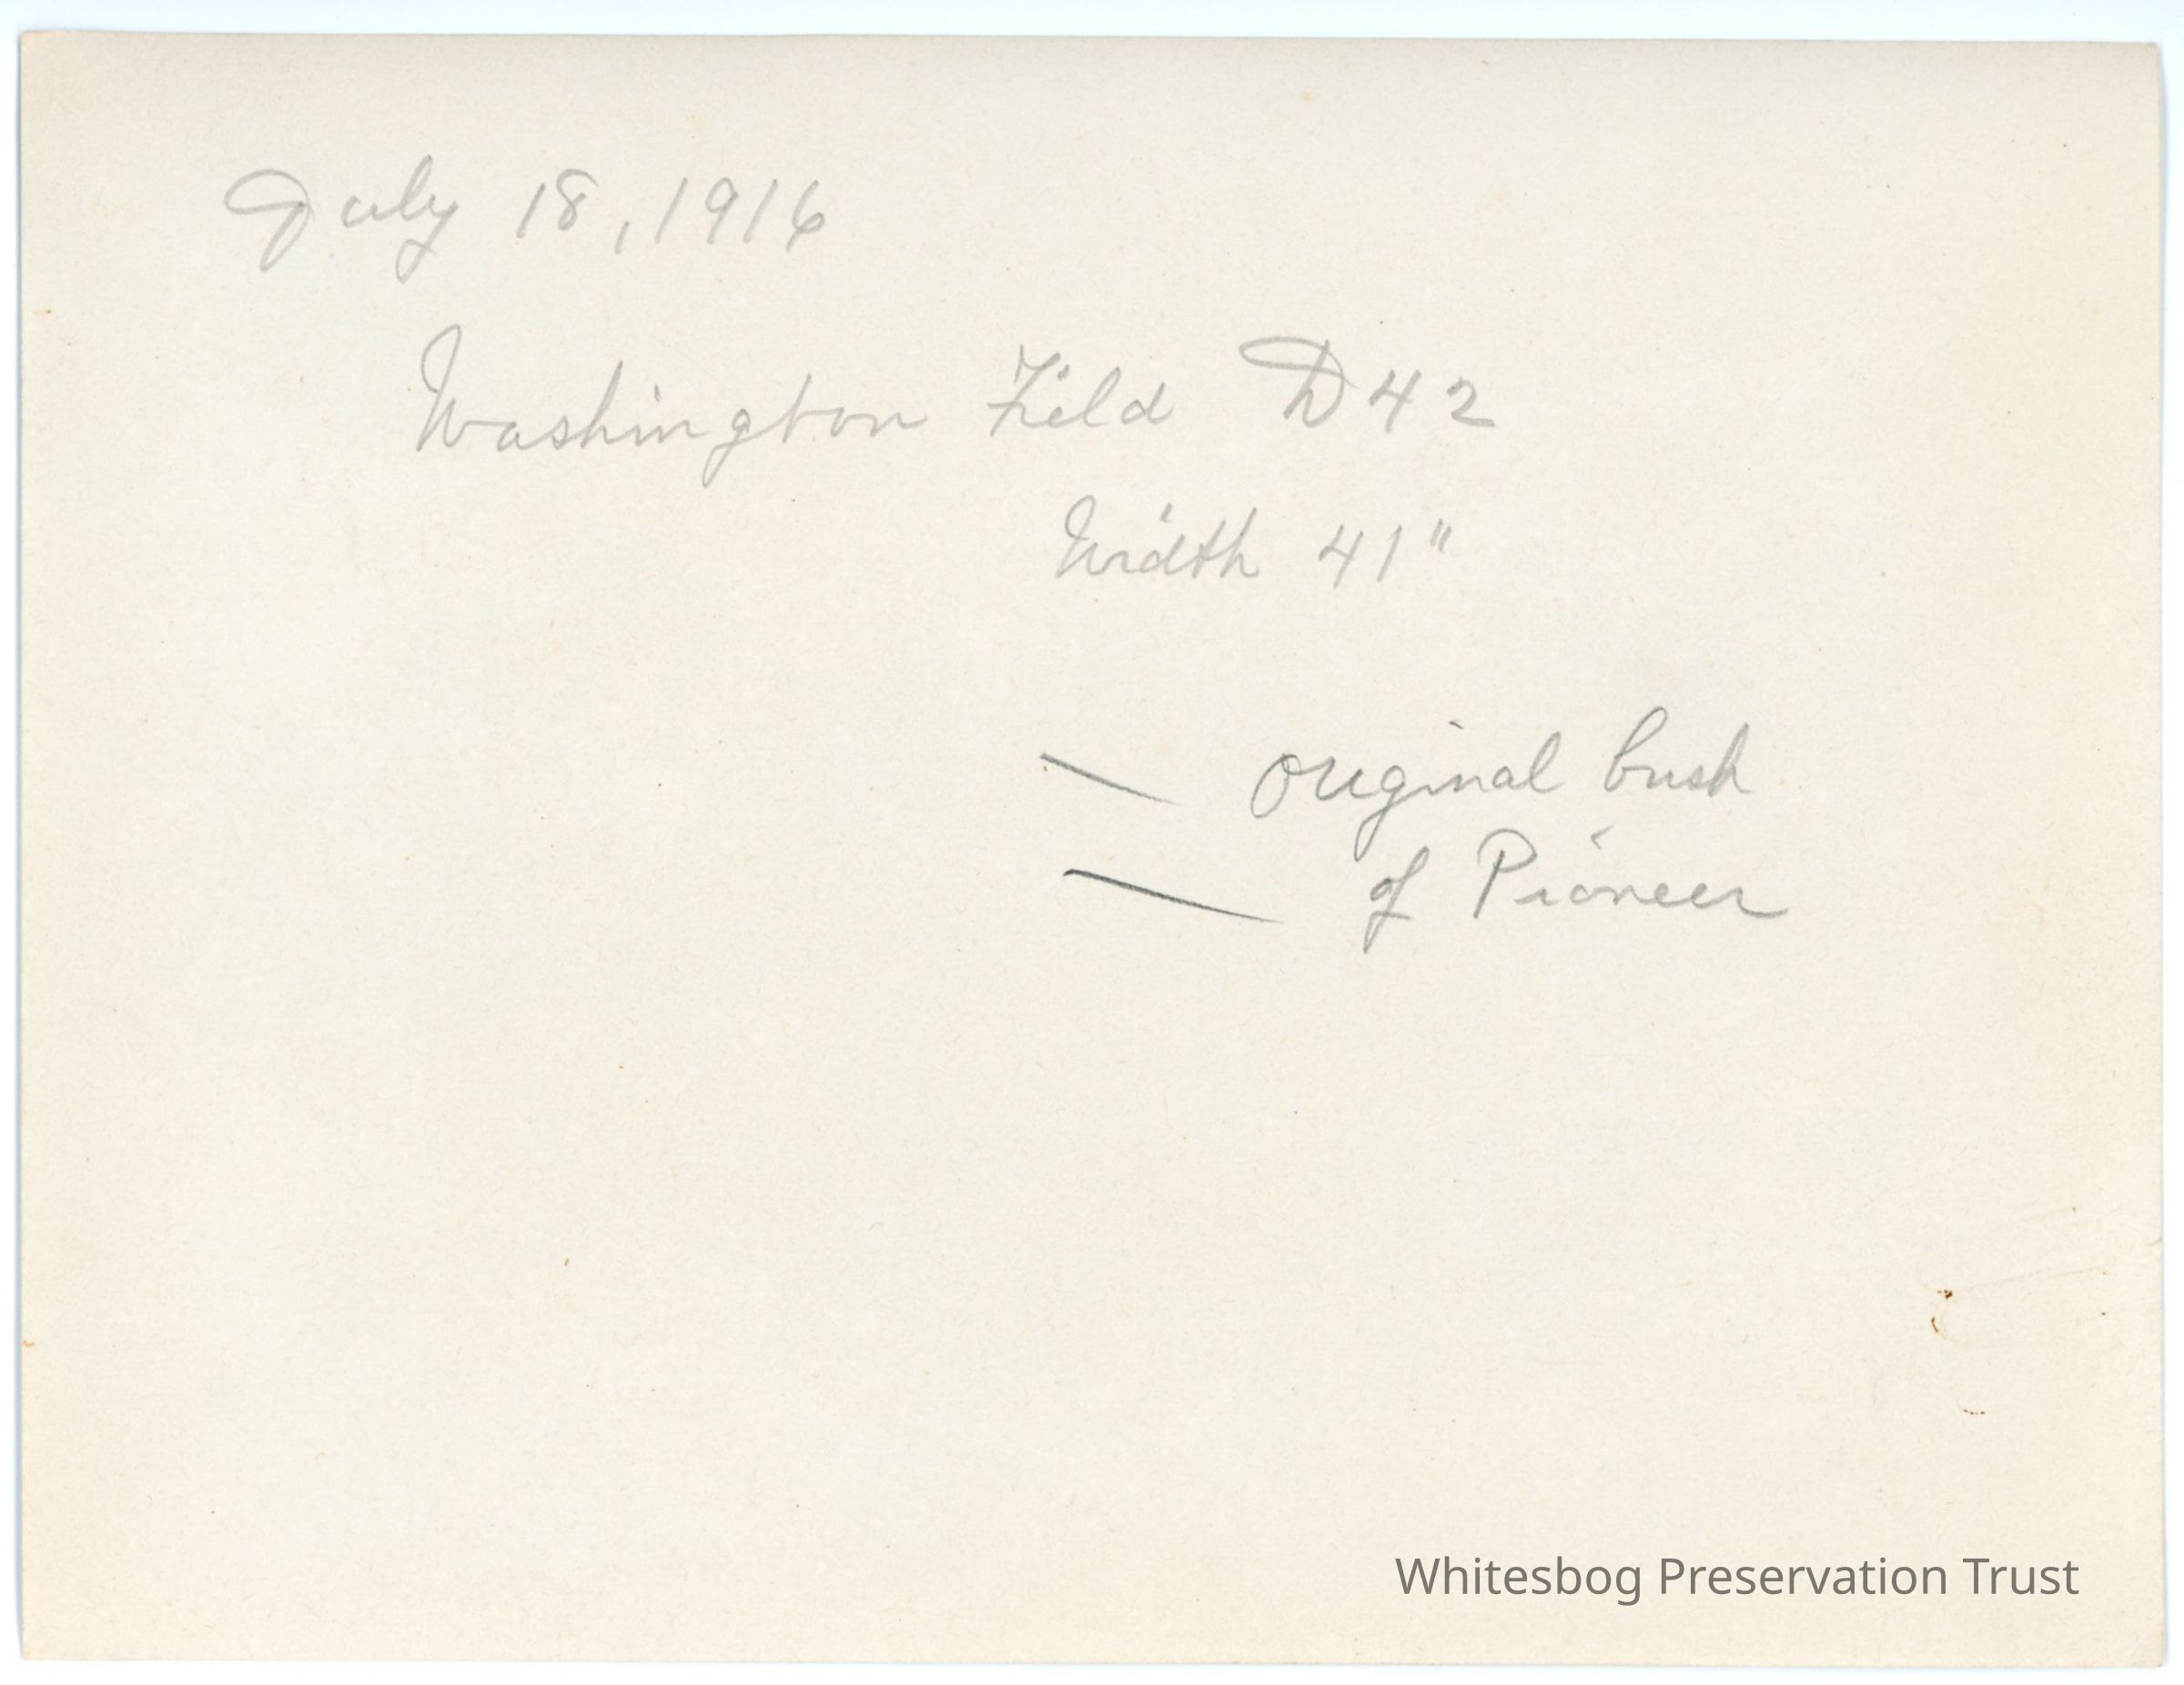 July 18, 1916
Washington Field D42
Width 41"
— Original bush
— of Pioneer
Whitesbog Preservation Trust